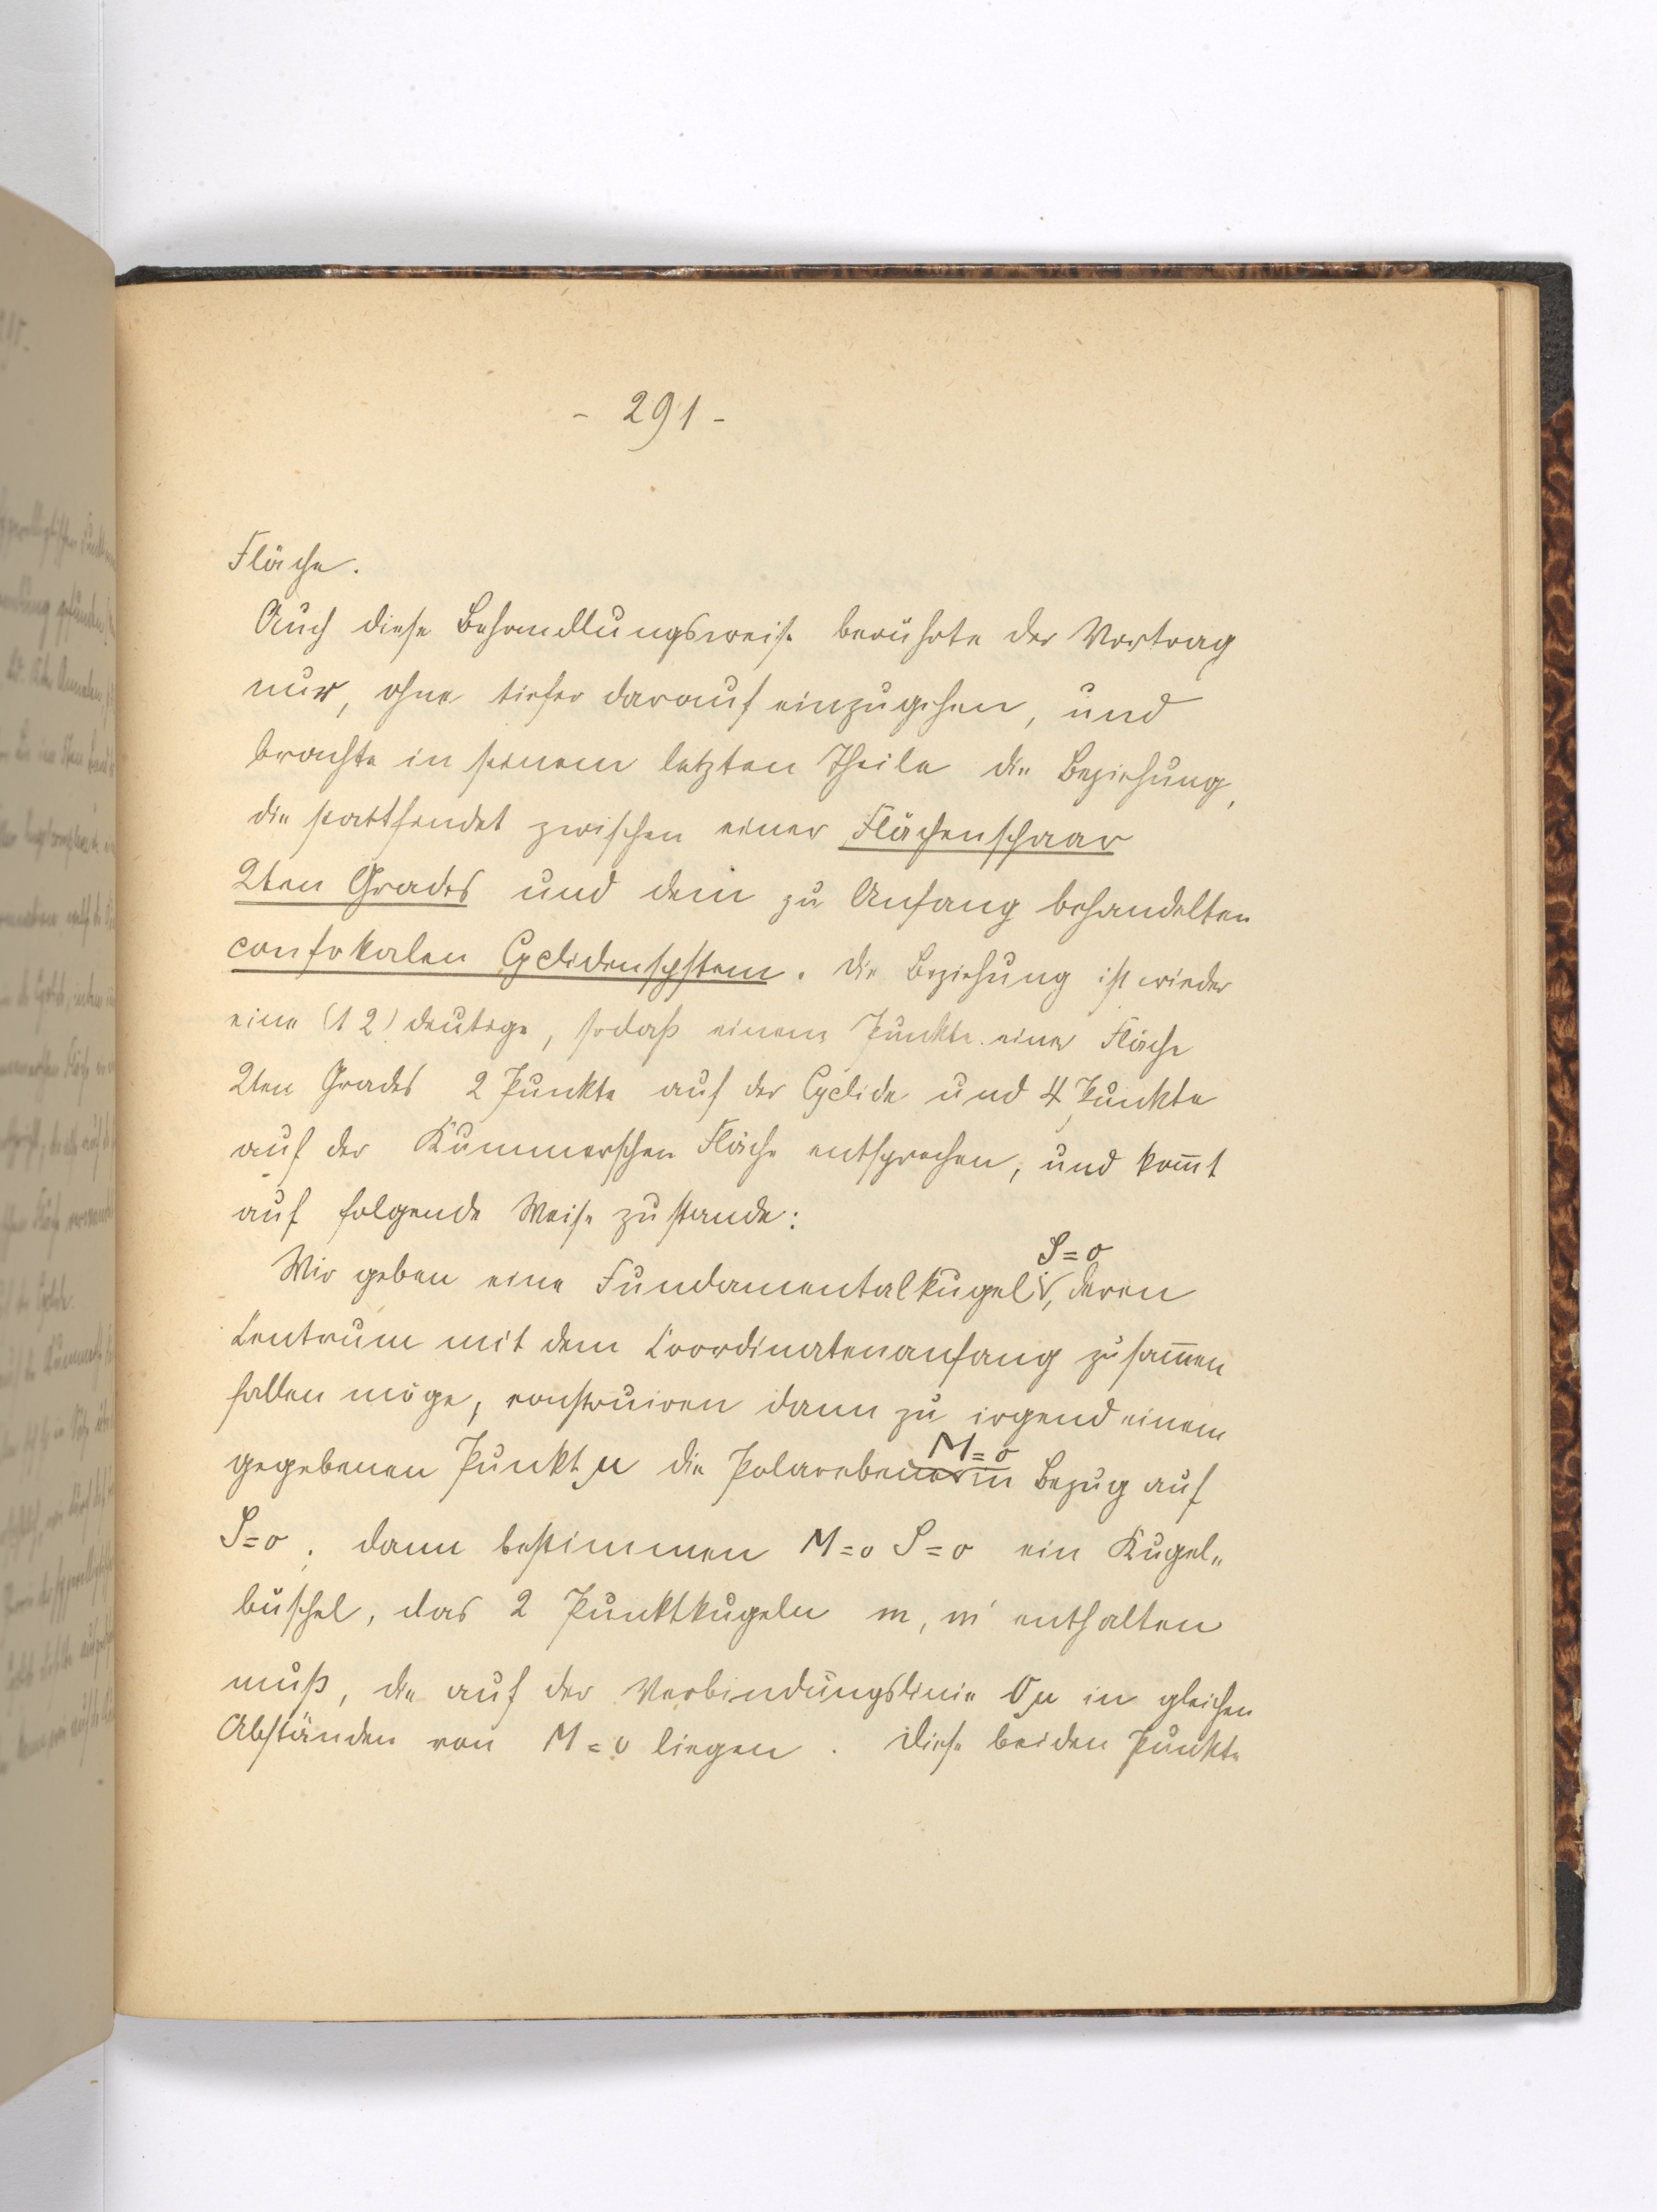 - 291 -
Fläche.
Auch diese Behandlungsweise berührte der Vortrag
nur, ohne tiefer darauf einzugehen, und
brachte in seinem letzten Theile die Beziehung,
die stattfindet zwischen einer Flächenschaar
2ten Grades und dem zu Anfang behandelten
confokalen Cyclidensystem. Die Beziehung ist wieder
eine (1 2) deutige, sodaß einem Punkte einer Fläche
2ten Grades 2 Punkte auf der Cyclide und 4 Punkte
auf der Kummerschen Fläche entsprechen, und kom̅t
auf folgende Weise zustande:
S=o
Wir geben eine Fundamentalkugel, deren
Centrum mit dem Coordinatenanfang zusam̅en
fallen möge, construiren dann zu irgend einem
M=o
gegebenen Punkt μ die Polarebene in Bezug auf
S=o, dann bestimmen M=o S=o ein Kugel„
büschel, das 2 Punktkugeln m, m' enthalten
muß, die auf der Verbindungslinie Oμ in gleichen
Abständen von M=o liegen. Diese beiden Punkte